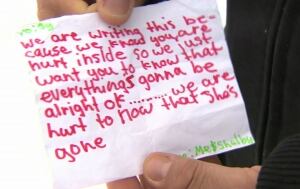 we are writing this be-
cause we know you are
hurt inside so we just
want you to know that
everythings gonna be
alright ok.......... we are
hurt to now that she's
gone
:Me$Shelby